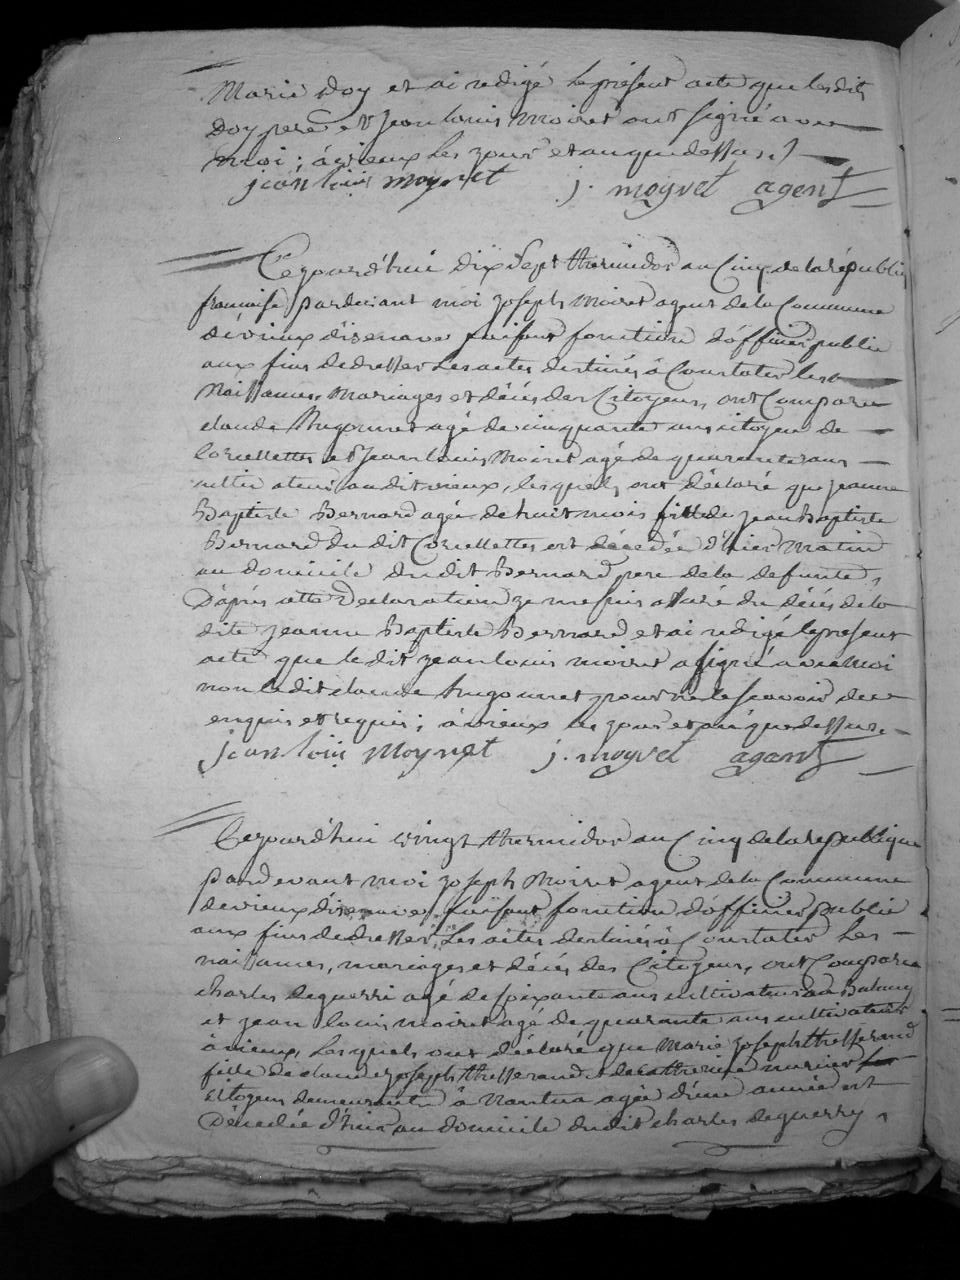 Marie Doy et ai redigé le présent acte que lesdits
Doy pere et Jean louis Moiret ont signé avec
moi ; à vieux les jour et an que dessus ./
jean louis moynet j. moynet agent
Cejourd'hui dix sept thermidor an Cinq de la républi
francaise pardevant moi Joseph Moiret agent de la Commune
de vieux disenave faisant fonction d'officier public
aux fins de dresser les actes destinés à Constater les
Naissances, Mariages et décès des Citoyens, ont Comparu
claude Hugonnet agé de cinquante ans citoyen de
Corcellettes et Jean louis Moiret agé de quarante ans
cultivateur audit vieux, lesquels ont déclaré que jeanne
Baptiste Bernard agée de huit mois fille de Jean Baptiste
Bernard du dit Corcellettes est décedée d'hier Matin
au domicile dudit Bernard pere de la defunte,
D'après cette Declaration je me suis assuré du décès de la
dite jeanne Baptiste Bernard et ai redigé le present
acte que ledit Jean louis moiret a signé avec moi
non ledit claude hugonnet pour ne le scavoir de ce
enquis et requis ; à vieux les jour et an que dessus.
jean loüis moynet j. moynet agent
Cejourd'hui vingt thermidor an Cinq de la republique
pardevant moi Joseph Moiret agent de la Commune
de vieux disenave, faisant fonction d'officier public
aux fins de dresser les actes destinés à Constater les
naissances, mariages et décès des Citoyens, ont Comparu
charles deguerri agé de soixante ans cultivateur au
et Jean louis moiret agé de quarante ans cultivateur
à vieux, lesquels ont déclaré que Marie Joseph thesserand
fille de claude joseph thesserand et de Catherine
citoyens demeurant à Nantua agée d'une année est
Décedée d'hier au domicile dudit charles deguerry,